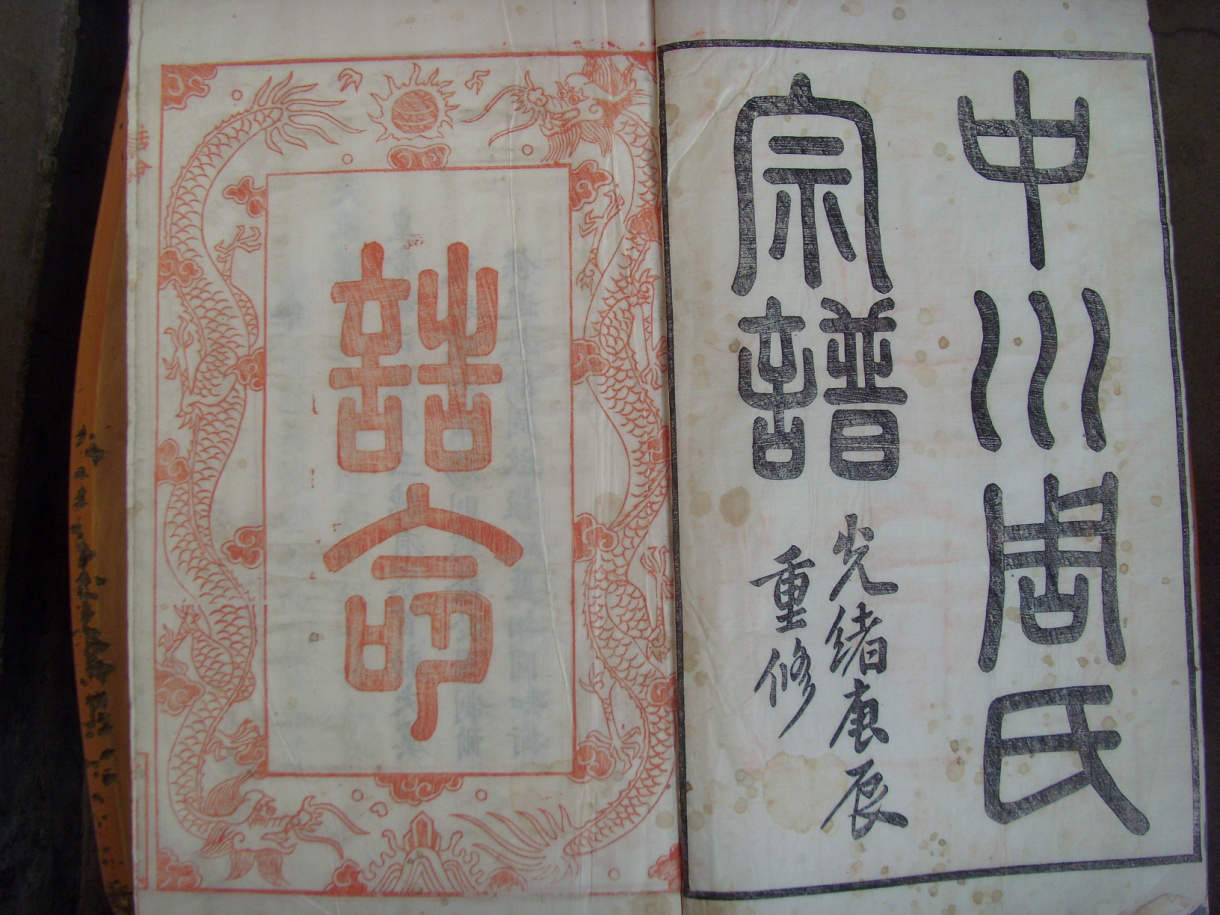 中川周氏
宗譜
光緒庚辰
重修
誥命